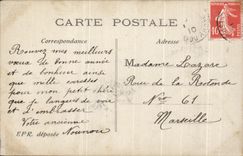 CARTE POSTALE
Correspondance
Adresse
Recevez mes meilleurs
vœux de bonne année
et de bonheur ainsi que
mille caresses
pour mon petit chéri
que je languis de voir
et d'embrasser
Votre ancienne
Nounou
E.P.R. déposée
Madame Lazare
Rue de la Rotonde
No 61
Marseille
10